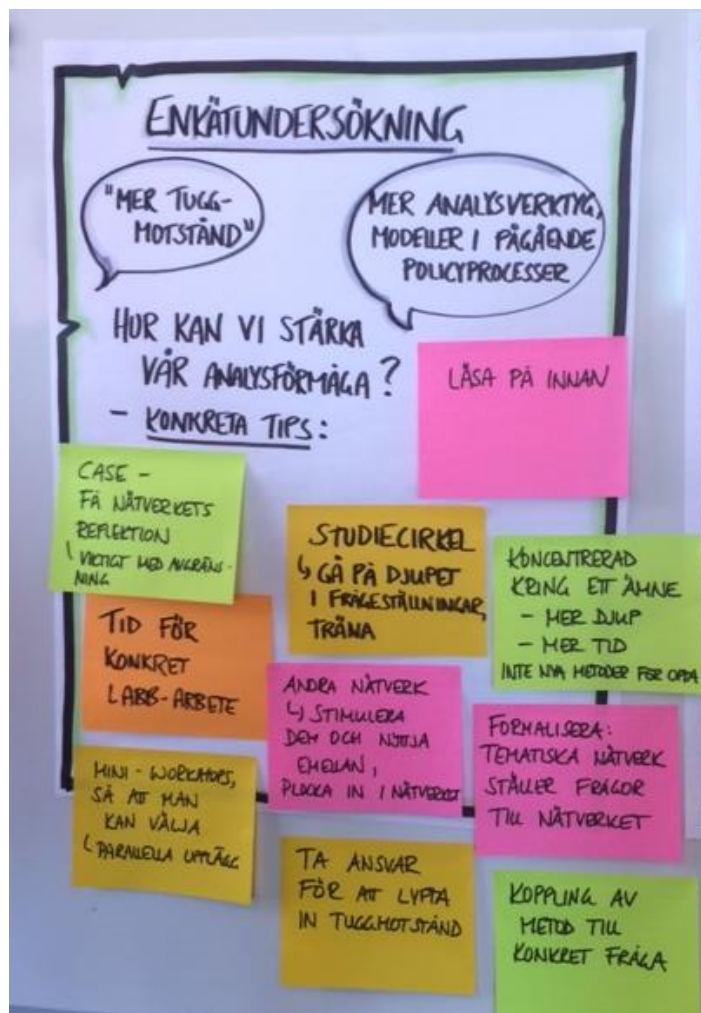 ENKÄTUNDERSÖKNING
"MER TUGG-
MOTSTÅND"
MER ANALYSVERKTYG,
MODELLER I PÅGÅENDE
POLICYPROCESSER
HUR KAN VI STÄRKA
VÅR ANALYSFÖRMÅGA?
- KONKRETA TIPS:
LÄSA PÅ INNAN
CASE -
FÅ NÄTVERKETS
REFLEKTION
VIKTIGT MED AVGRÄNS-
NING
STUDIECIRKEL
↳ GÅ PÅ DJUPET
I FRÅGESTÄLLNINGAR,
TRÄNA
KONCENTRERAD
KRING ETT ÄMNE
- MER DJUP
- MER TID
INTE NYA METODER FÖR
TID FÖR
KONKRET
LABB-ARBETE
ANDRA NÄTVERK
↳ STIMULERA
DEM OCH NYTTJA
EMELLAN,
PLOCKA IN I NÄTVERKET
FORMALISERA:
TEMATISKA NÄTVERK
STÄLLER FRÅGOR
TILL NÄTVERKET
MINI-WORKSHOPS,
SÅ ATT MAN
KAN VÄLJA
PARALLELLA UPPLÄGG
TA ANSVAR
FÖR ATT LYFTA
IN TUGGMOTSTÅND
KOPPLING AV
METOD TILL
KONKRET FRÅGA